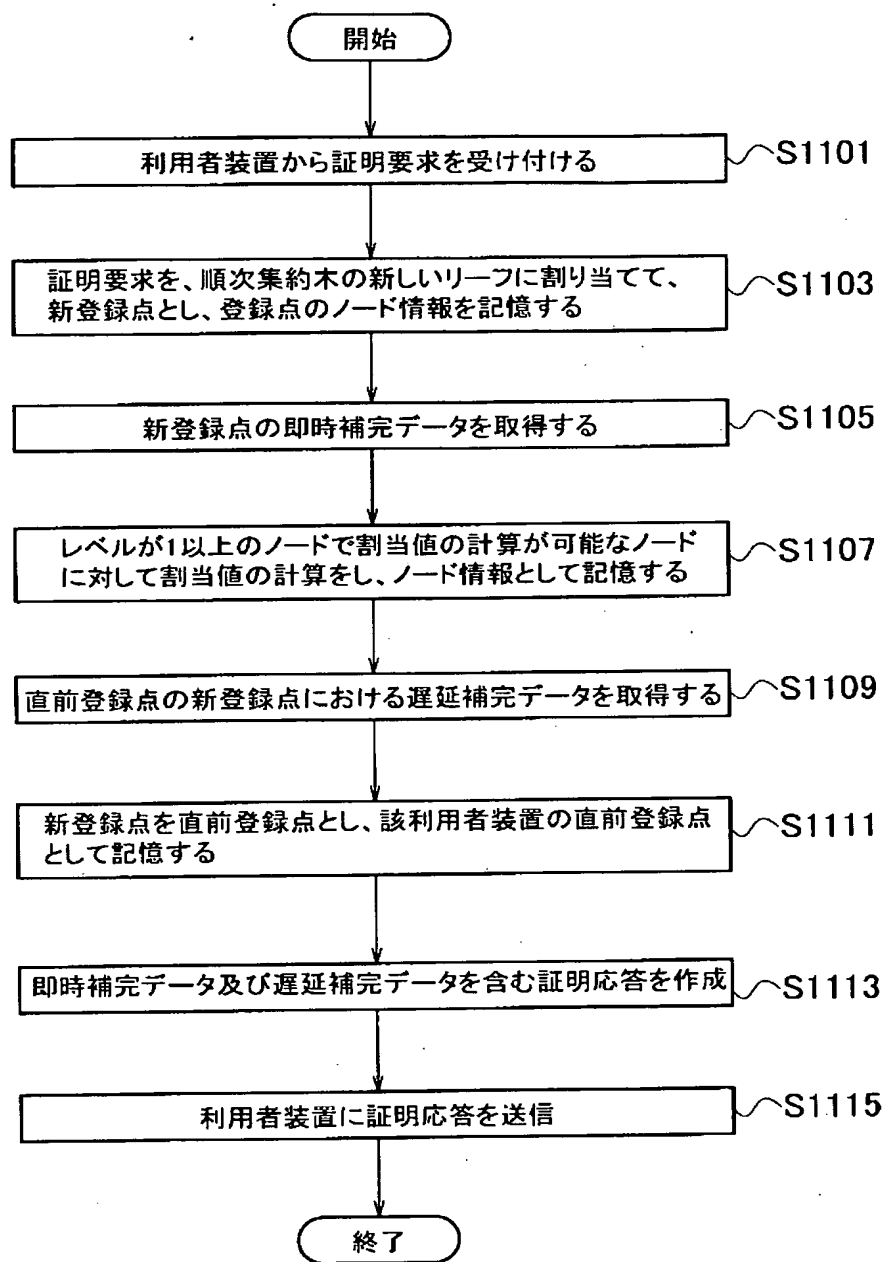 開始
利用者装置から証明要求を受け付ける
S1101
証明要求を、順次集約木の新しいリーフに割り当てて、
新登録点とし、登録点のノード情報を記憶する
S1103
新登録点の即時補完データを取得する
S1105
レベルが1以上のノードで割当値の計算が可能なノード
に対して割当値の計算をし、ノード情報として記憶する
S1107
直前登録点の新登録点における遅延補完データを取得する
S1109
新登録点を直前登録点とし、該利用者装置の直前登録点
として記憶する
S1111
即時補完データ及び遅延補完データを含む証明応答を作成
S1113
利用者装置に証明応答を送信
S1115
終了